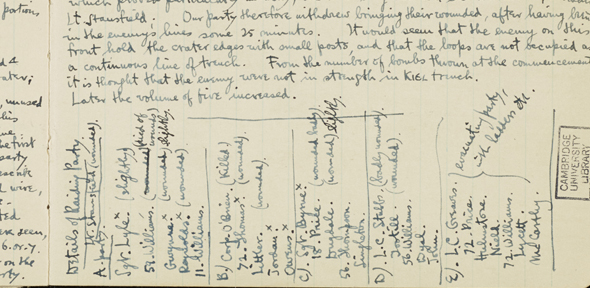 Lt Stansfeld. Our party therefore withdrew bringing their wounded, after having been
in the enemy's lines some 25 minutes. It would seem that the enemy on this
front hold the crater edges with small posts, and that the loops are not occupied as
a continuous line of trench. From the number of bombs thrown at the commencement
it is thought that the enemy were not in strength in KIEL trench.
Later the volume of fire increased.
Details of Raiding Party.
Lt. Stansfeld (wounded).
A. party
Sgt. Lyle. x (slightly)
58. Williams. (died of wounds)
Gwynne x (slightly)
Reynolds. x (wounded)
11. Williams.
B) Corp. O'Brien. (killed)
72. Thomas x (wounded).
Lether. (wounded).
Jordan x
Owens. x
C). Sgt. Byrne x (wounded badly).
18 Price. (wounded) slightly.
Dugdale.
56. Thompson.
Singleton.
D). L.C. Stubbs. (badly wounded).
Tootill (wounded).
56. Williams.
Dyal.
John.
E). L.C. Greaves.
72. Price.
Hulmstone
Nield.
72. Williams.
Lycett
McCarthy.
evacuating party,
with ladders etc.
CAMBRIDGE
UNIVERSITY
LIBRARY